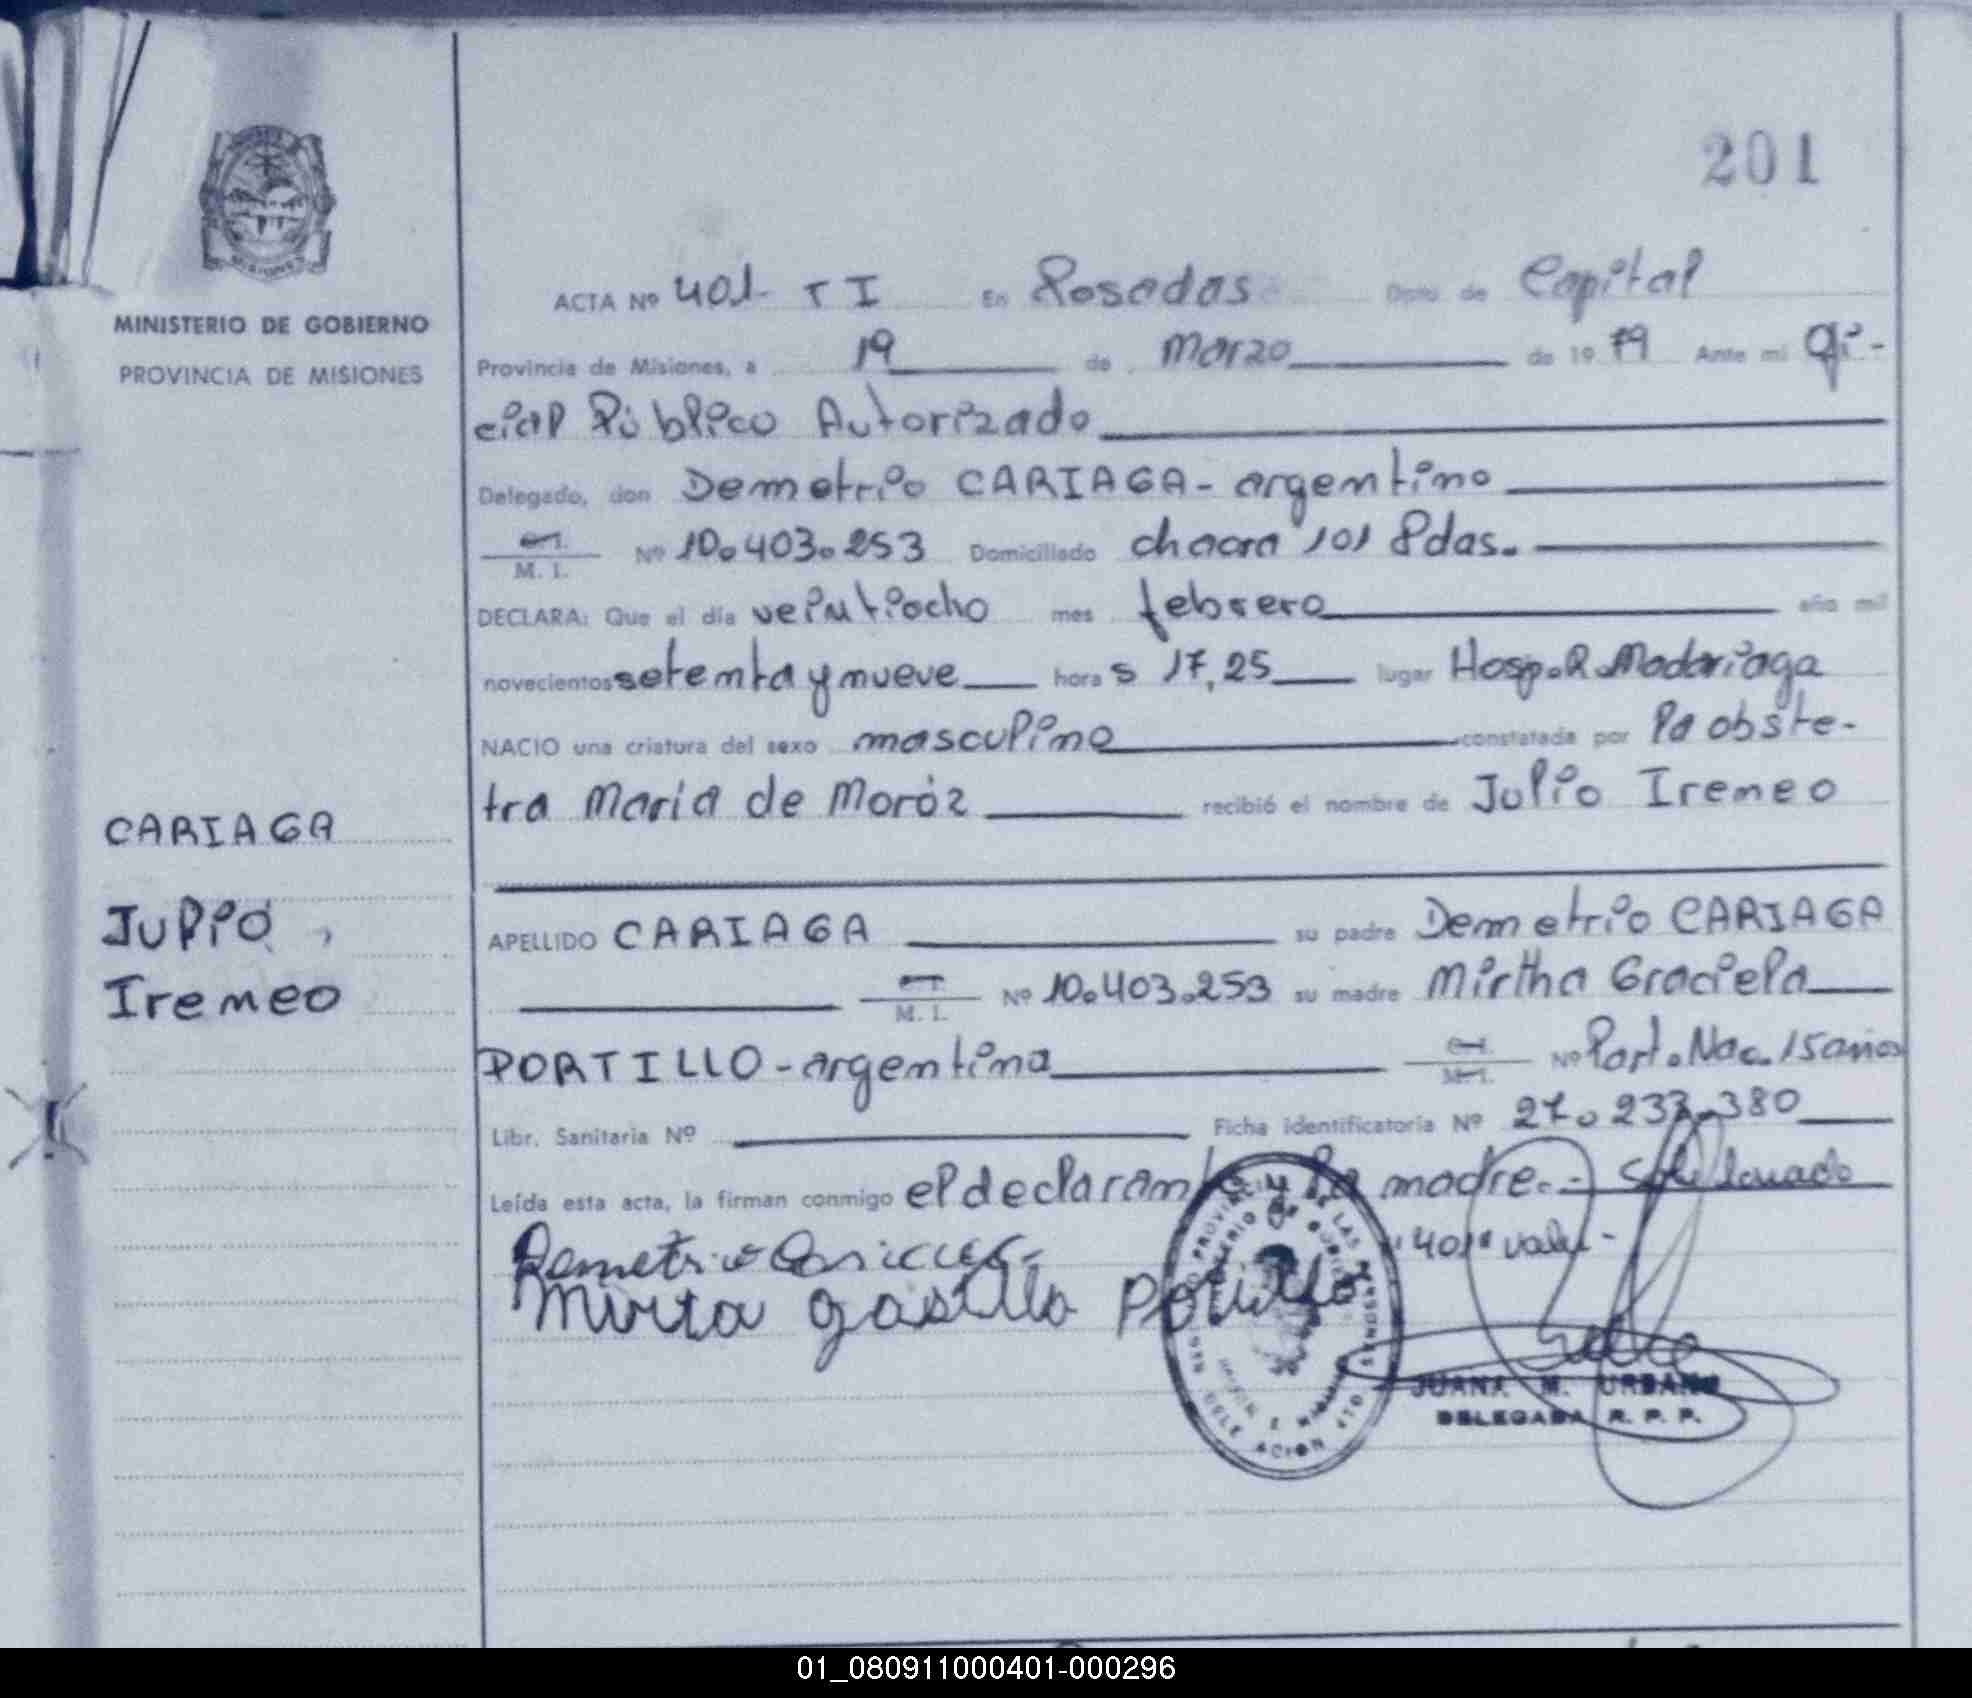 201
MINISTERIO DE GOBIERNO
PROVINCIA DE MISIONES
ACTA Nº 401- T I En Posadas Dpto de Capital
Provincia de Misiones, a 19 de Marzo de 1979 Ante mi Ofi-
cial Público Autorizado
Delegado, don Demetrio CARIAGA - argentino
M. I. Nº 10.403.253 Domiciliado chacra 101 Pdas.
DECLARA: Que el día veintiocho mes febrero año mil
novecientos setenta y nueve horas 17,25 lugar Hosp. R. Madariaga
NACIO una criatura del sexo masculino constatada por la obste-
tra Maria de Moróz recibió el nombre de Julio Ireneo
CARIAGA
Julio
Ireneo
APELLIDO CARIAGA su padre Demetrio CARIAGA
M. I. Nº 10.403.253 su madre Mirtha Graciela
PORTILLO - argentina Nº Part. Nac. 15 años
Libr. Sanitaria Nº Ficha identificatoria Nº 27.233.380
Leída esta acta, la firman conmigo el declarante la madre.-
Demetrio "401"
Mirta Portillo
JUANA M. URBANO
DELEGADA R. P. P.
01_080911000401-000296